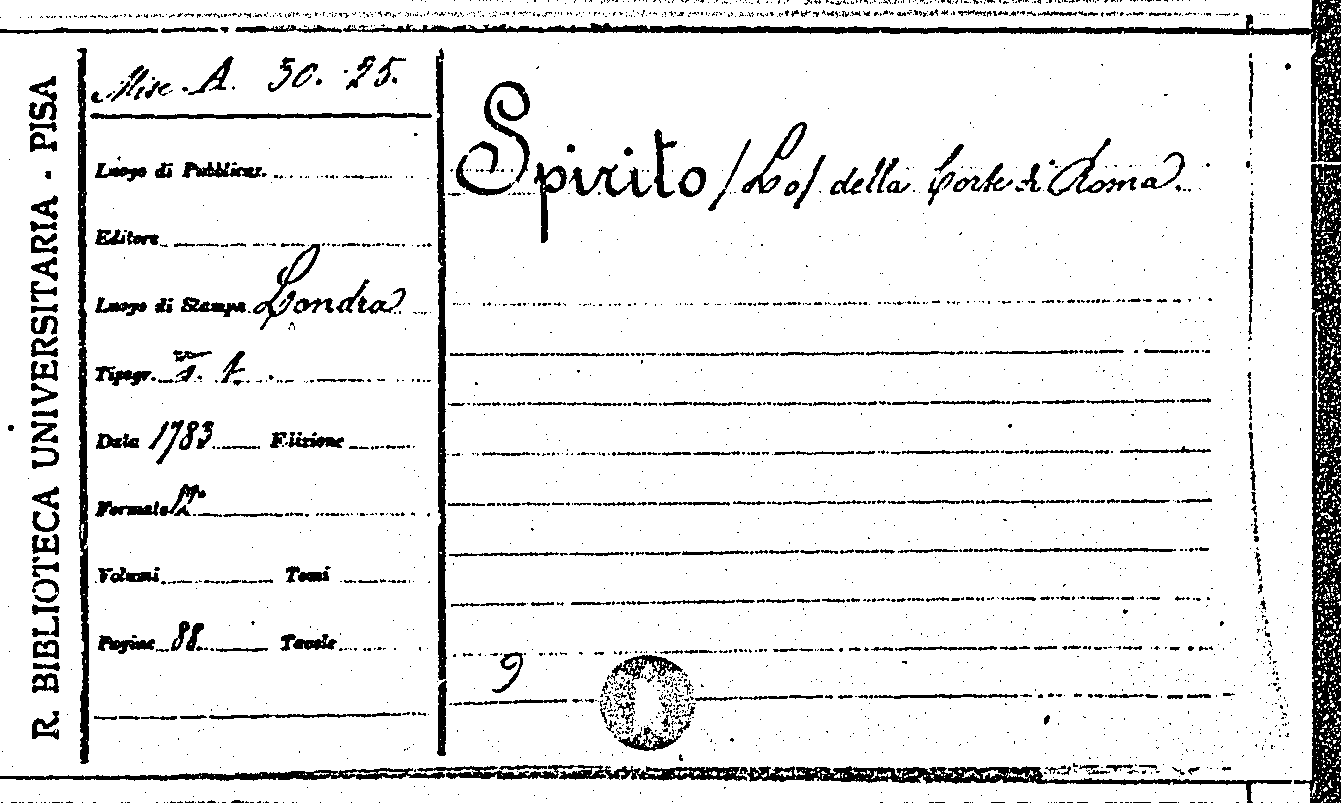 R. BIBLIOTECA UNIVERSITARIA - PISA
Misc. A. 30. 25.
Luogo di Pubblicaz.
Editore
Luogo di Stampa Londra
Tipogr. S. t.
Data 1783 Edizione
Formato 12°
Volumi Tomi
Pagine 88 Tavole
Spirito /Lo/ della Corte di Roma.
9